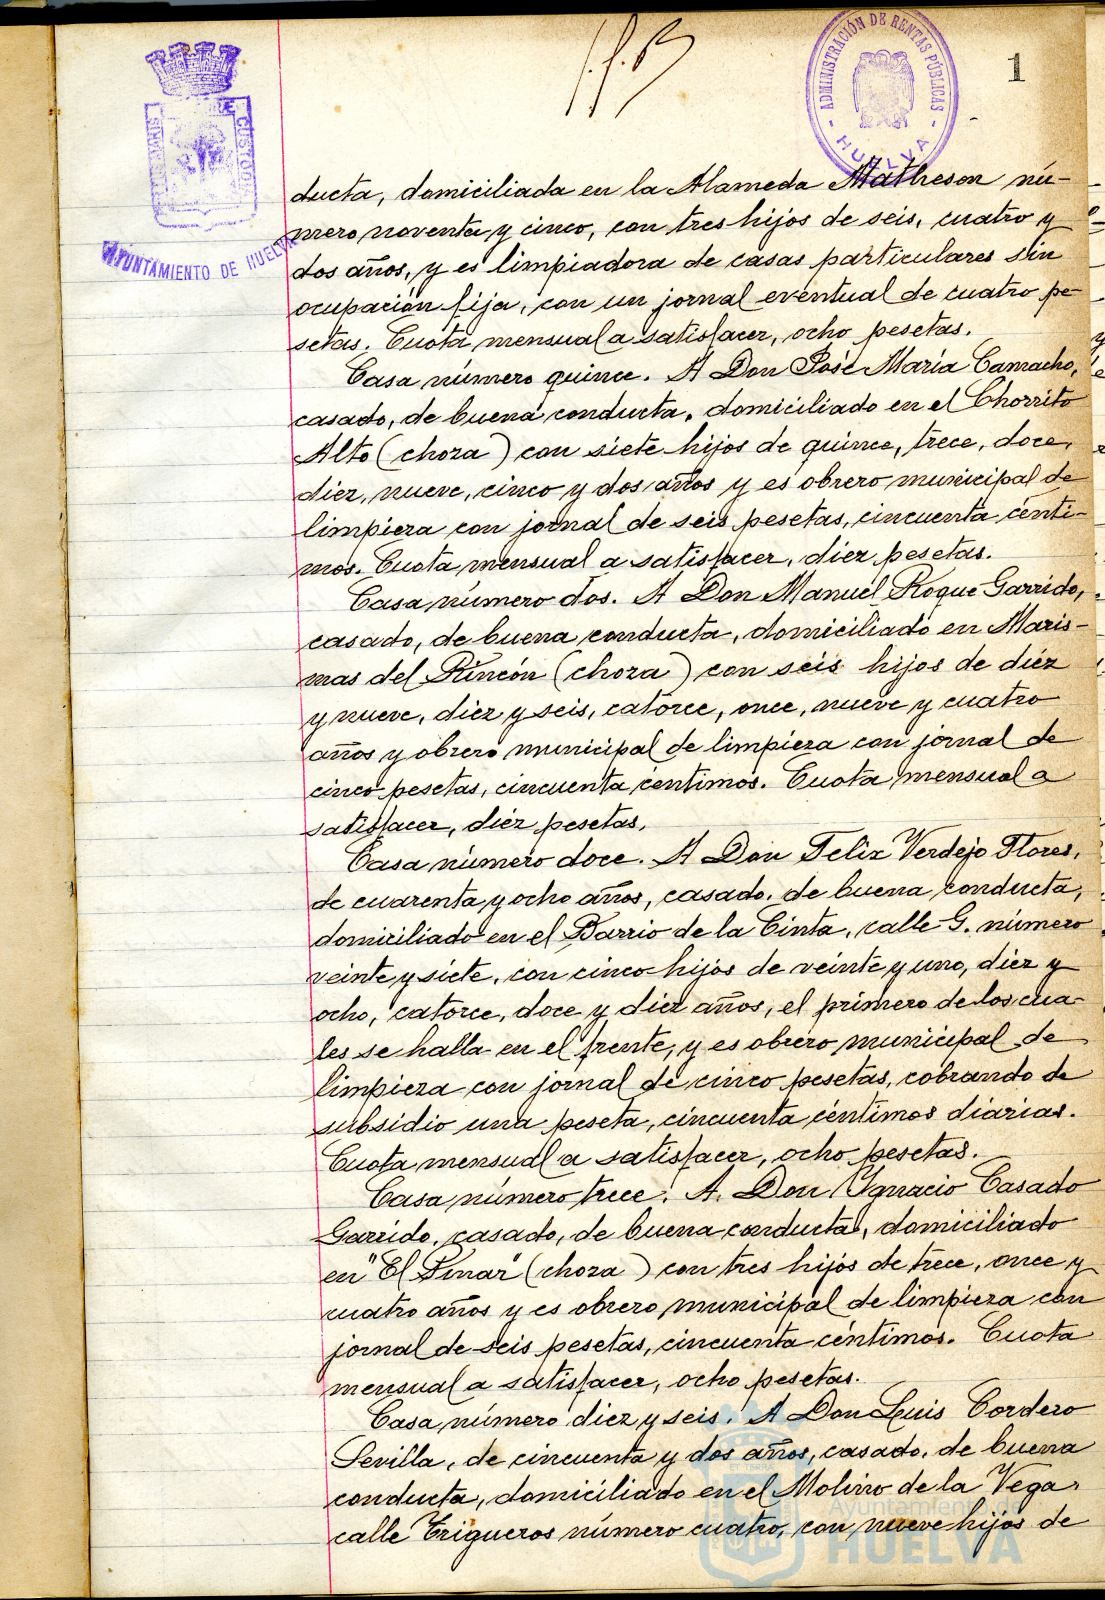 ADMINISTRACIÓN DE RENTAS PÚBLICAS
HUELVA
1
CUSTODIA
AYUNTAMIENTO DE HUELVA
ducta, domiciliada en la Alameda Matheson nú-
mero noventa y cinco, con tres hijos de seis, cuatro y
dos años, y es limpiadora de casas particulares sin
ocupación fija, con un jornal eventual de cuatro pe-
setas. Cuota mensual a satisfacer, ocho pesetas.
Casa número quince. A Don José María Camacho,
casado, de buena conducta, domiciliado en el Chorrito
Alto (choza) con siete hijos de quince, trece, doce,
diez, nueve, cinco y dos años y es obrero municipal de
limpieza con jornal de seis pesetas, cincuenta cénti-
mos. Cuota mensual a satisfacer, diez pesetas.
Casa número dos. A Don Manuel Roque Garrido,
casado, de buena conducta, domiciliado en Maris-
mas del Rincón (choza) con seis hijos de diéz
y nueve, diez y seis, catorce, once, nueve y cuatro
años y obrero municipal de limpieza con jornal de
cinco pesetas, cincuenta céntimos. Cuota mensual a
satisfacer, diéz pesetas.
Casa número doce. A Don Felix Verdejo Flores,
de cuarenta y ocho años, casado, de buena conducta,
domiciliado en el Barrio de la Cinta, calle G. número
veinte y siete, con cinco hijos de veinte y uno, diez y
ocho, catorce, doce y diez años, el primero de los cua-
les se halla en el frente, y es obrero municipal de
limpieza con jornal de cinco pesetas, cobrando de
subsidio una peseta, cincuenta céntimos diarias.
Cuota mensual a satisfacer, ocho pesetas.
Casa número trece. A. Don Ygnacio Casado
Garrido, casado, de buena conducta, domiciliado
en "El Pinar" (choza) con tres hijos de trece, once y
cuatro años y es obrero municipal de limpieza con
jornal de seis pesetas, cincuenta céntimos. Cuota
mensual a satisfacer, ocho pesetas.
Casa número diez y seis. A Don Luis Cordero
Sevilla, de cincuenta y dos años, casado, de buena
conducta, domiciliado en el Molino de la Vega,
calle Trigueros número cuatro, con nueve hijos de
Ayuntamiento de
HUELVA